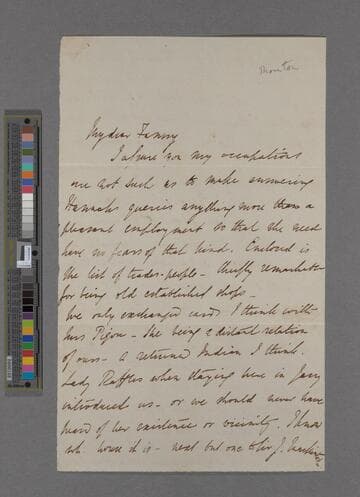 My dear Fanny
I assure you my occupations
are not such as to make answering
Hannah's queries anything more than a
pleasant employment so that she need
have no fears of that kind. Enclosed is
the list of trades-people - chiefly remarkable
for being old established shops -
We only exchanged cards I think with
Mrs Pigou - she being a distant relation
of ours - a returned Indian I think.
Lady Raffles when staying here in Jany
introduced us - or we should never have
heard of her existence or vicinity. I know
wh. house it is - next but one to Sir J.